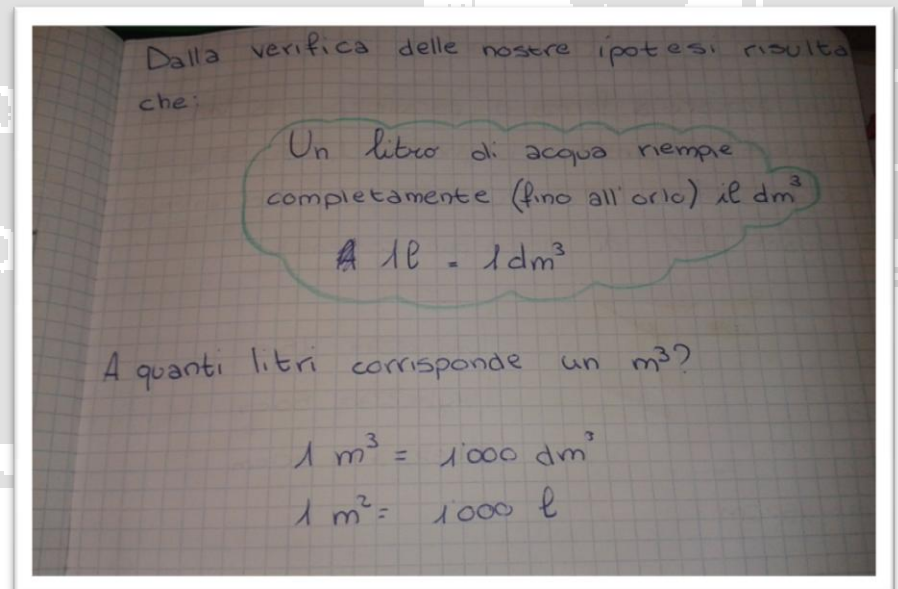 Dalla verifica delle nostre ipotesi risulta
che:
Un litro di acqua riempie
completamente (fino all'orlo) il dm³
1l = 1dm³
A quanti litri corrisponde un m³?
1 m³ = 1'000 dm³
1 m² = 1000 l